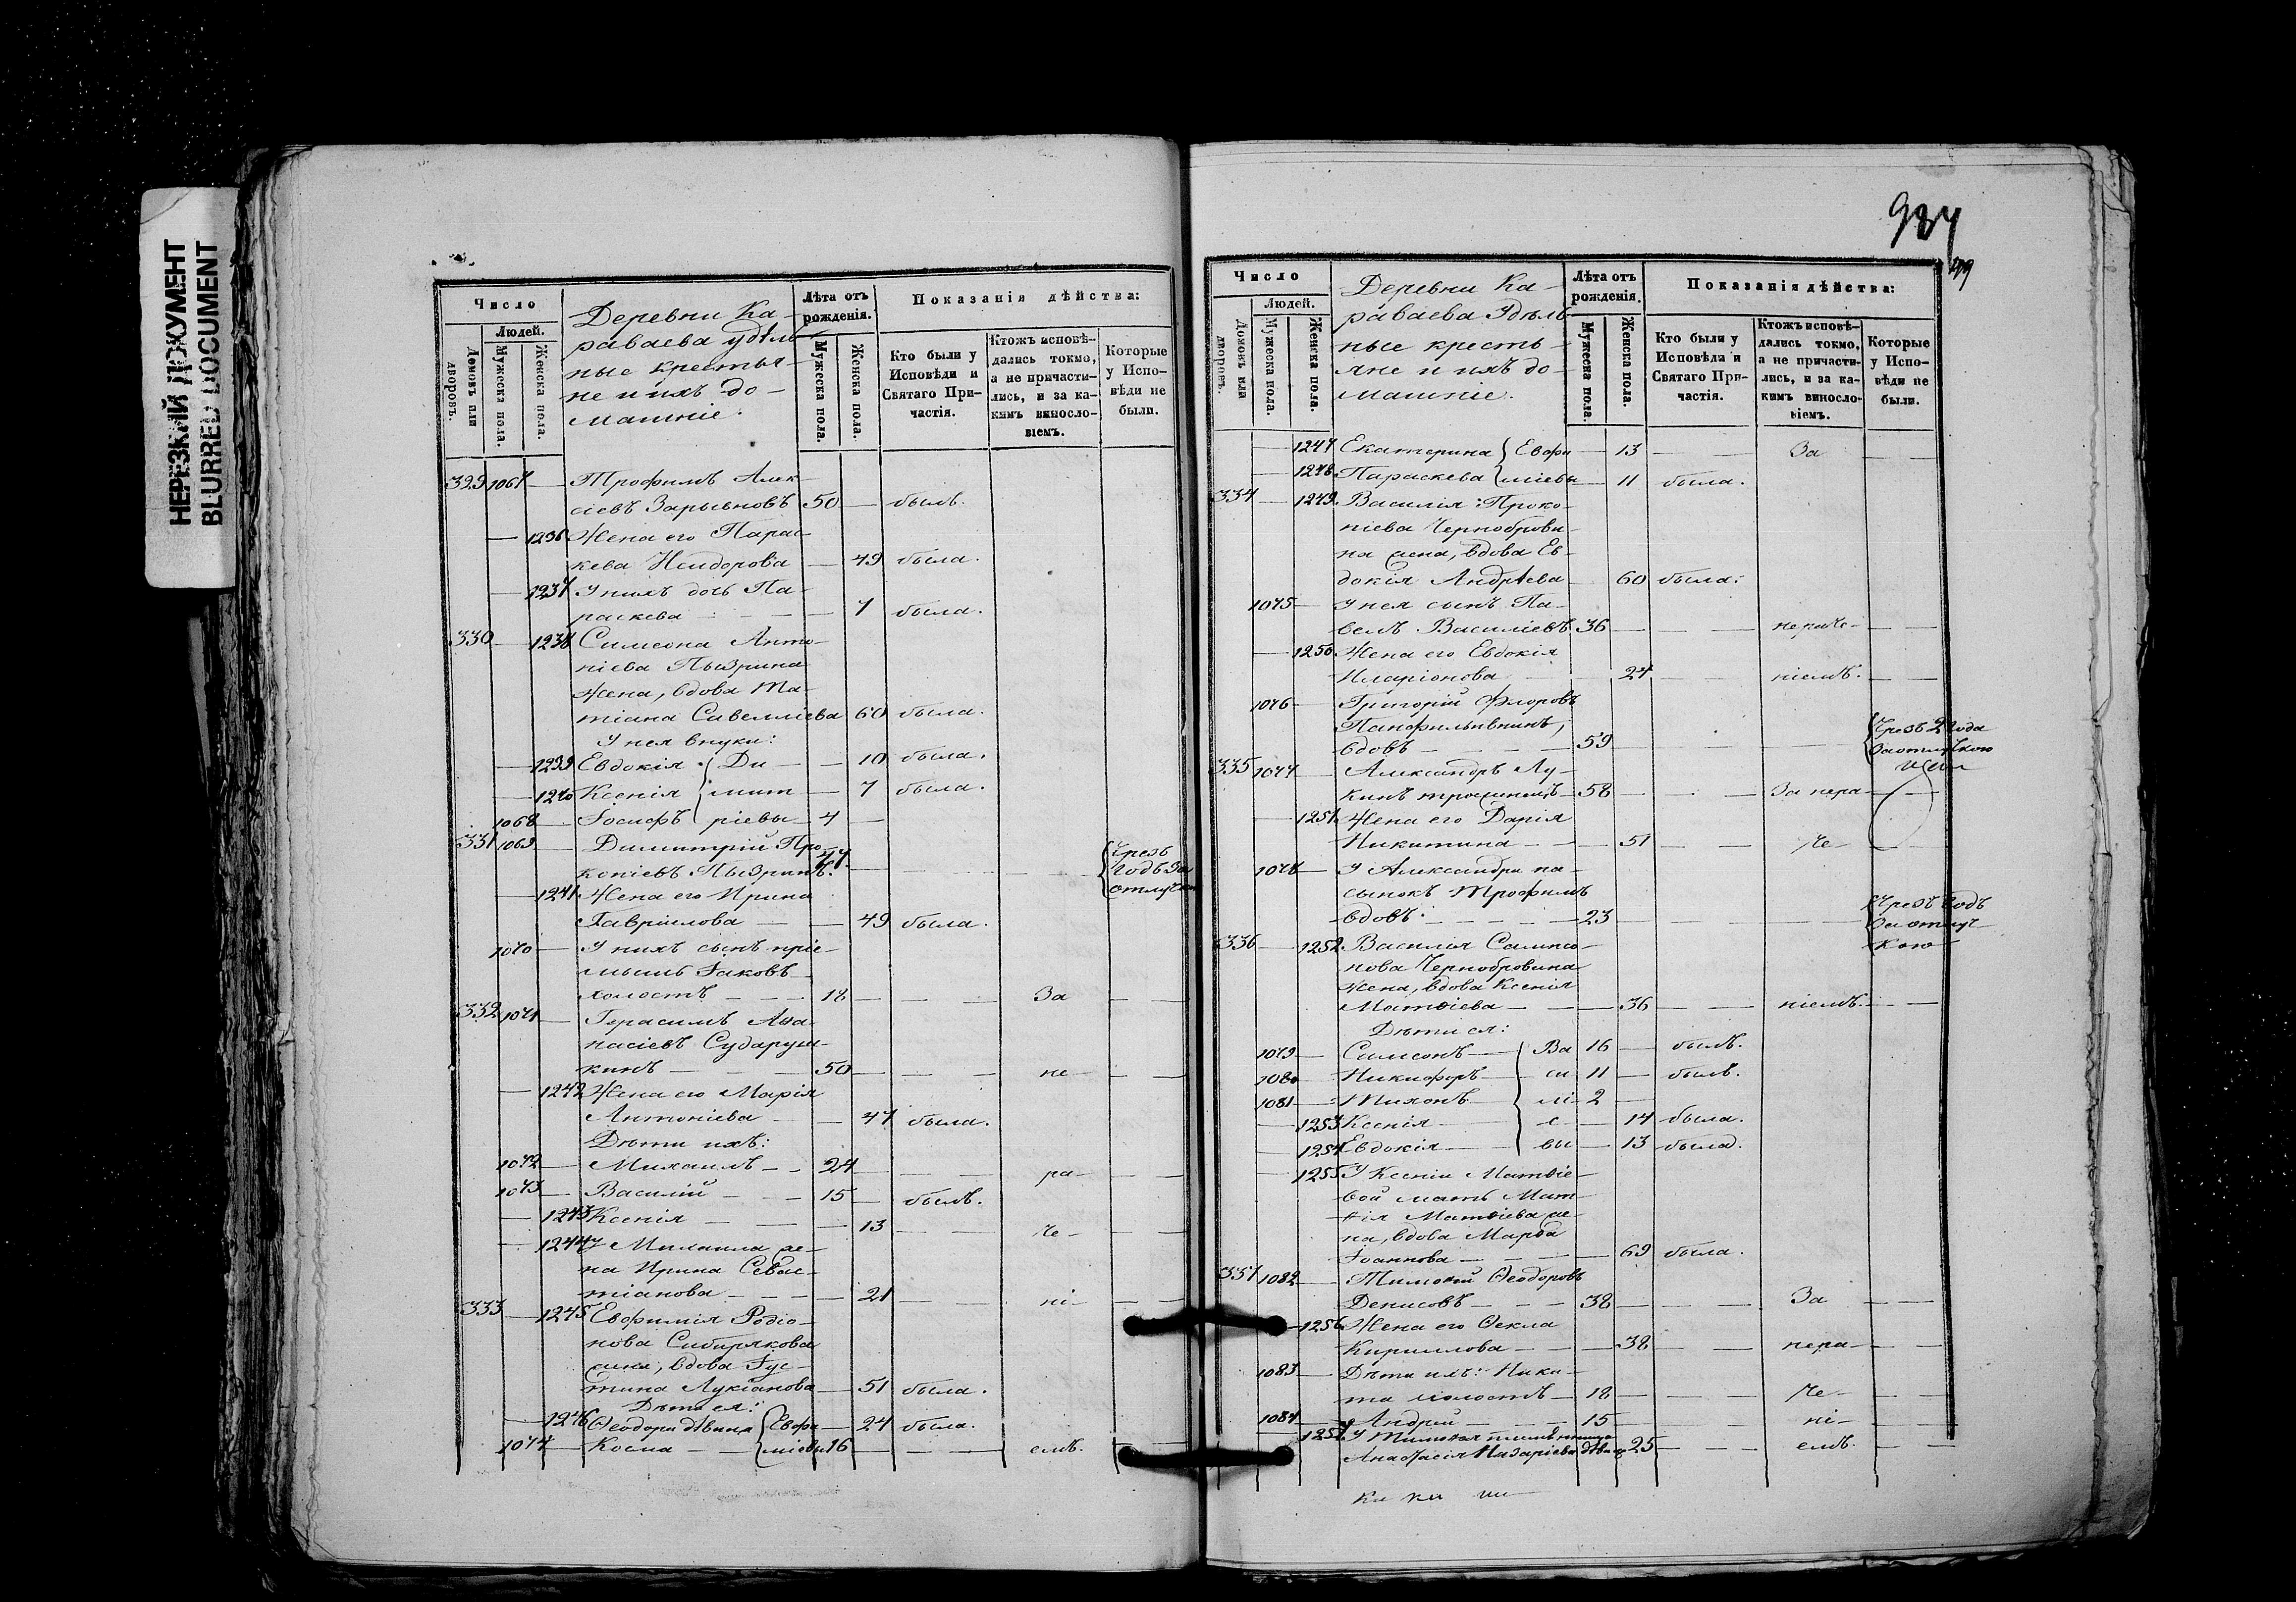 НЕРЕЗКИЙ ДОКУМЕНТ
BLURRED DOCUMENT
Число
Людей.
Домовъ или дворовъ.
Мужеска пола.
Женска пола.
Деревни Ка-
раваева удѣль
ные крестья-
не и ихъ до-
машніе.
Лѣта отъ рожденія.
Мужеска пола.
Женска пола.
Показанія дѣйства:
Кто были у Исповѣди и Святаго При-частія.
Ктожъ исповѣ-дались токмо, а не причасти-лись, и за ка-кимъ винословіемъ.
Которые у Испо-вѣди не были.
329 1067 — Трофимъ Алек-
сіевъ 50 — былъ.
— 1236 Жена его Парас-
кева Исидорова — 49 была.
— 1237 У нихъ дочь Па-
раскева — 7 была.
330 — 1238 Симеона Анто-
ніева Пызрина
жена, вдова Та-
тіана Савелліева 60 была.
У нея внуки:
— 1239 Евдокія Ди — 10 была.
— 1240 Ксенія мит — 7 была.
1068 — Іосифъ ріевы — 4 —
331 1069 — Димитрій Про
копіевъ Пызринъ. 47. — — — Чрезъ
годъ за
отлучкою
— 1241 Жена его Ирина
Гавріилова — — 49 была.
1070 — У нихъ сынъ пріе-
мышъ Іаковъ
холостъ — — 18 — — За — —
332 1071 — Герасимъ Аѳа-
насіевъ Сударуш-
кинъ — — 50 — — не — —
— 1242 Жена его Марія
Антоніева — — 47 была.
Дѣти ихъ:
1072 — Михаилъ — 24 — — ра — —
1073 — Василій — 15 — былъ.
— 1243 Ксенія — — 13 — — че — —
— 1244 У Михаила же-
на Ирина Севас-
тіанова — — 21 — — ні — —
333 — 1245 Евфимія Родіо-
нова Сибирякова
жена, вдова Іус-
тина Лукіанова — 51 была.
Дѣти ея:
— 1246 Ѳеодора дѣвица Евфи — 24 была.
1074 — Косма — міевы 16 — — емъ. —
984
Число
Людей.
Домовъ или дворовъ.
Мужеска пола.
Женска пола.
Деревни Ка-
раваева Удѣль
ные кресть-
яне и ихъ до-
машніе.
Лѣта отъ рожденія.
Мужеска пола.
Женска пола.
Показанія дѣйства:
Кто были у Исповѣди и Святаго При-частія.
Ктожъ исповѣ-дались токмо, а не причасти-лись, и за ка-кимъ винословіемъ.
Которые у Испо-вѣди не были.
— 1247 Екатерина Евфи — 13 — — За — —
— 1248 Параскева міевы — 11 была.
334 — 1249 Василія Проко-
піева Черноброви-
на жена, вдова Ев-
докія Андреева — 60 была.
1075 — У нея сынъ Па-
велъ Василіевъ 36 — — нераче — —
— 1250 Жена его Евдокія
Иларіонова — 24 — — ніемъ. — —
1076 — Григорій Флоровъ
вдовъ — — 59 — — Чрезъ 2 года
за отлучкою
335 1077 — Александръ Лу-
кинъ — 58 — — За нера — —
— 1251 Жена его Дарія
Никитина — — 51 — — че — —
1078 — У Александра па-
сынокъ Трофимъ
вдовъ — — 23 — — Чрезъ годъ
за отлуч-
кою
336 — 1252 Василія Сампсо-
нова Чернобровина
жена, вдова Ксенія
Матѳіева — — 36 — — ніемъ. — —
Дѣти ея:
1079 — Симеонъ — Ва 16 — былъ.
1080 — Никифоръ — си 11 — былъ.
1081 — Тихонъ — лі 2 —
— 1253 Ксенія — е — 14 была.
— 1254 Евдокія — вы — 13 была.
— 1255 У Ксеніи Матѳіе-
вой мать Мат-
ѳія Матѳіева же-
на, вдова Марѳа
Іоаннова — — 69 была.
337 1082 — Тимоѳей Ѳеодоровъ
Денисовъ — — 38 — — За — —
— 1256 Жена его Ѳекла
Кириллова — — 38 — — нера — —
1083 — Дѣти ихъ: Ники-
та холостъ — 18 — — че — —
1084 — Андрей — — 15 — — ні — —
— 1257 У Тимоѳея племянница
Анастасія Назаріева дѣвица 25 — — емъ. — —